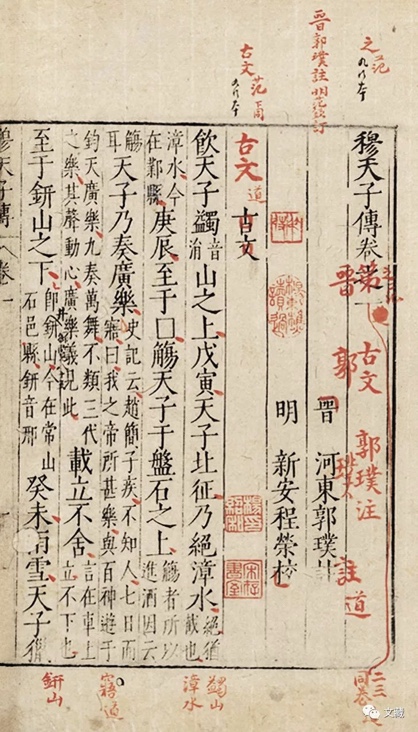 之 范
古文 范
晉郭璞註 范
穆天子傳卷第一
晉 古文
郭 郭璞注
璞
註
道
晉 河東郭璞註
明 新安程榮校
古文 道
古文
飲天子蠲音涓山之上戊寅天子北征乃絕漳水絕猶截也
漳水今在鄴縣庚辰至于□觴天子于盤石之上觴者所以進酒因云
觴耳天子乃奏廣樂史記云趙簡子疾不知人七日而寤曰我之帝所甚樂與百神遊于
鈞天廣樂九奏萬舞不類三代之樂其聲動心廣樂義見此載立不舍言在車上立不下也
至于鈃山之下即鈃山今在常山石邑縣鈃音邢癸未雨雪天子獵
穆天子傳 卷一
二三
同卷
蠲山
漳水
寤 道
鈃山
文藏